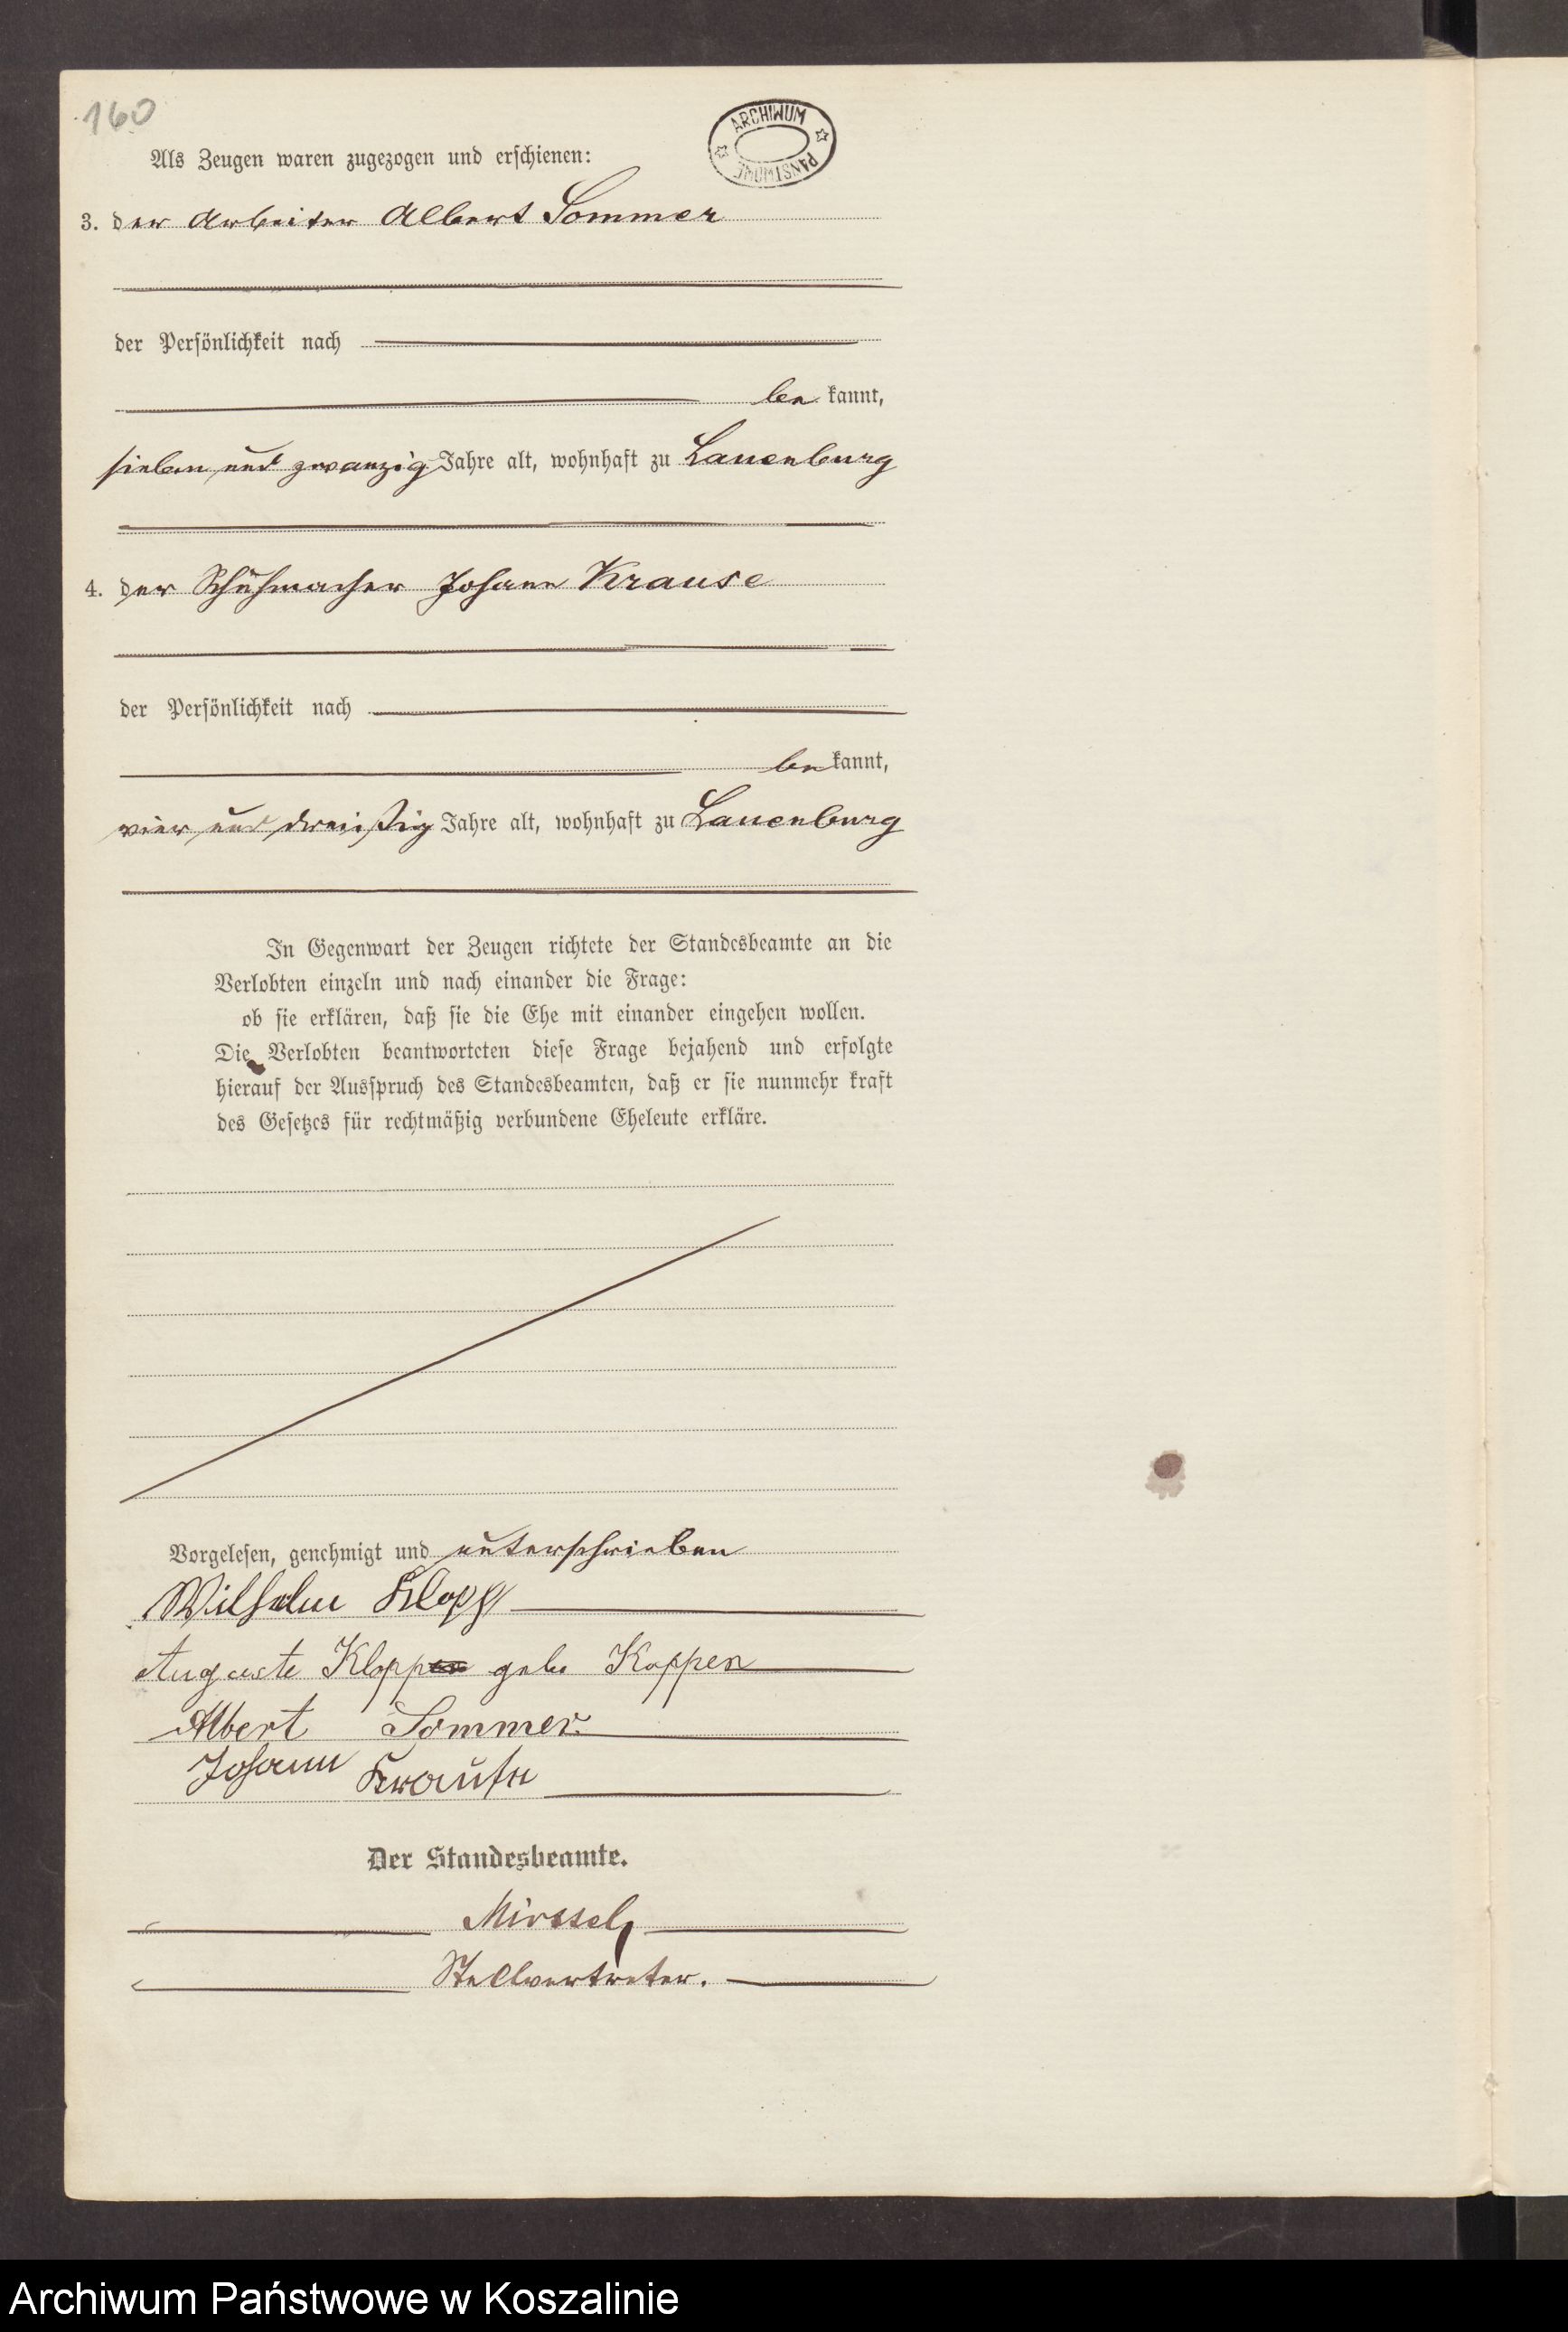 160
ARCHIWUM PAŃSTWOWE
Als Zeugen waren zugezogen und erschienen:
3. der Arbeiter Albert Sommer
der Persönlichkeit nach
be kannt,
sieben und zwanzig Jahre alt, wohnhaft zu Lauenburg
4. der Schuhmacher Johann Krause
der Persönlichkeit nach
be kannt,
vier und dreißig Jahre alt, wohnhaft zu Lauenburg
In Gegenwart der Zeugen richtete der Standesbeamte an die
Verlobten einzeln und nach einander die Frage:
ob sie erklären, daß sie die Ehe mit einander eingehen wollen.
Die Verlobten beantworteten diese Frage bejahend und erfolgte
hierauf der Ausspruch des Standesbeamten, daß er sie nunmehr kraft
des Gesetzes für rechtmäßig verbundene Eheleute erkläre.
Vorgelesen, genehmigt und unterschrieben
Wilhelm Klopp
Auguste Klopp geb. Koppen
Albert Sommer.
Johann Krause
Der Standesbeamte.
Stellvertreter.
Archiwum Państwowe w Koszalinie